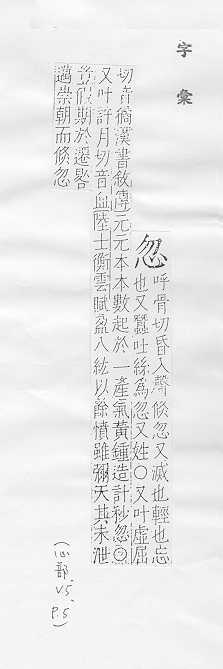 字彙
忽
呼骨切昏入聲倏忽又滅也輕也忘
也又蠶吐絲爲忽又姓〇又叶虛屈
切音漢書敘傳元元本本數起於一產氣黃鍾造計秒忽〇
又叶許月切音血陸士衡雲賦盈八紘以餘憤雖彌天其未泄
豈假期於遷晷
邁崇朝而倏忽
(心部, V5, P.5)